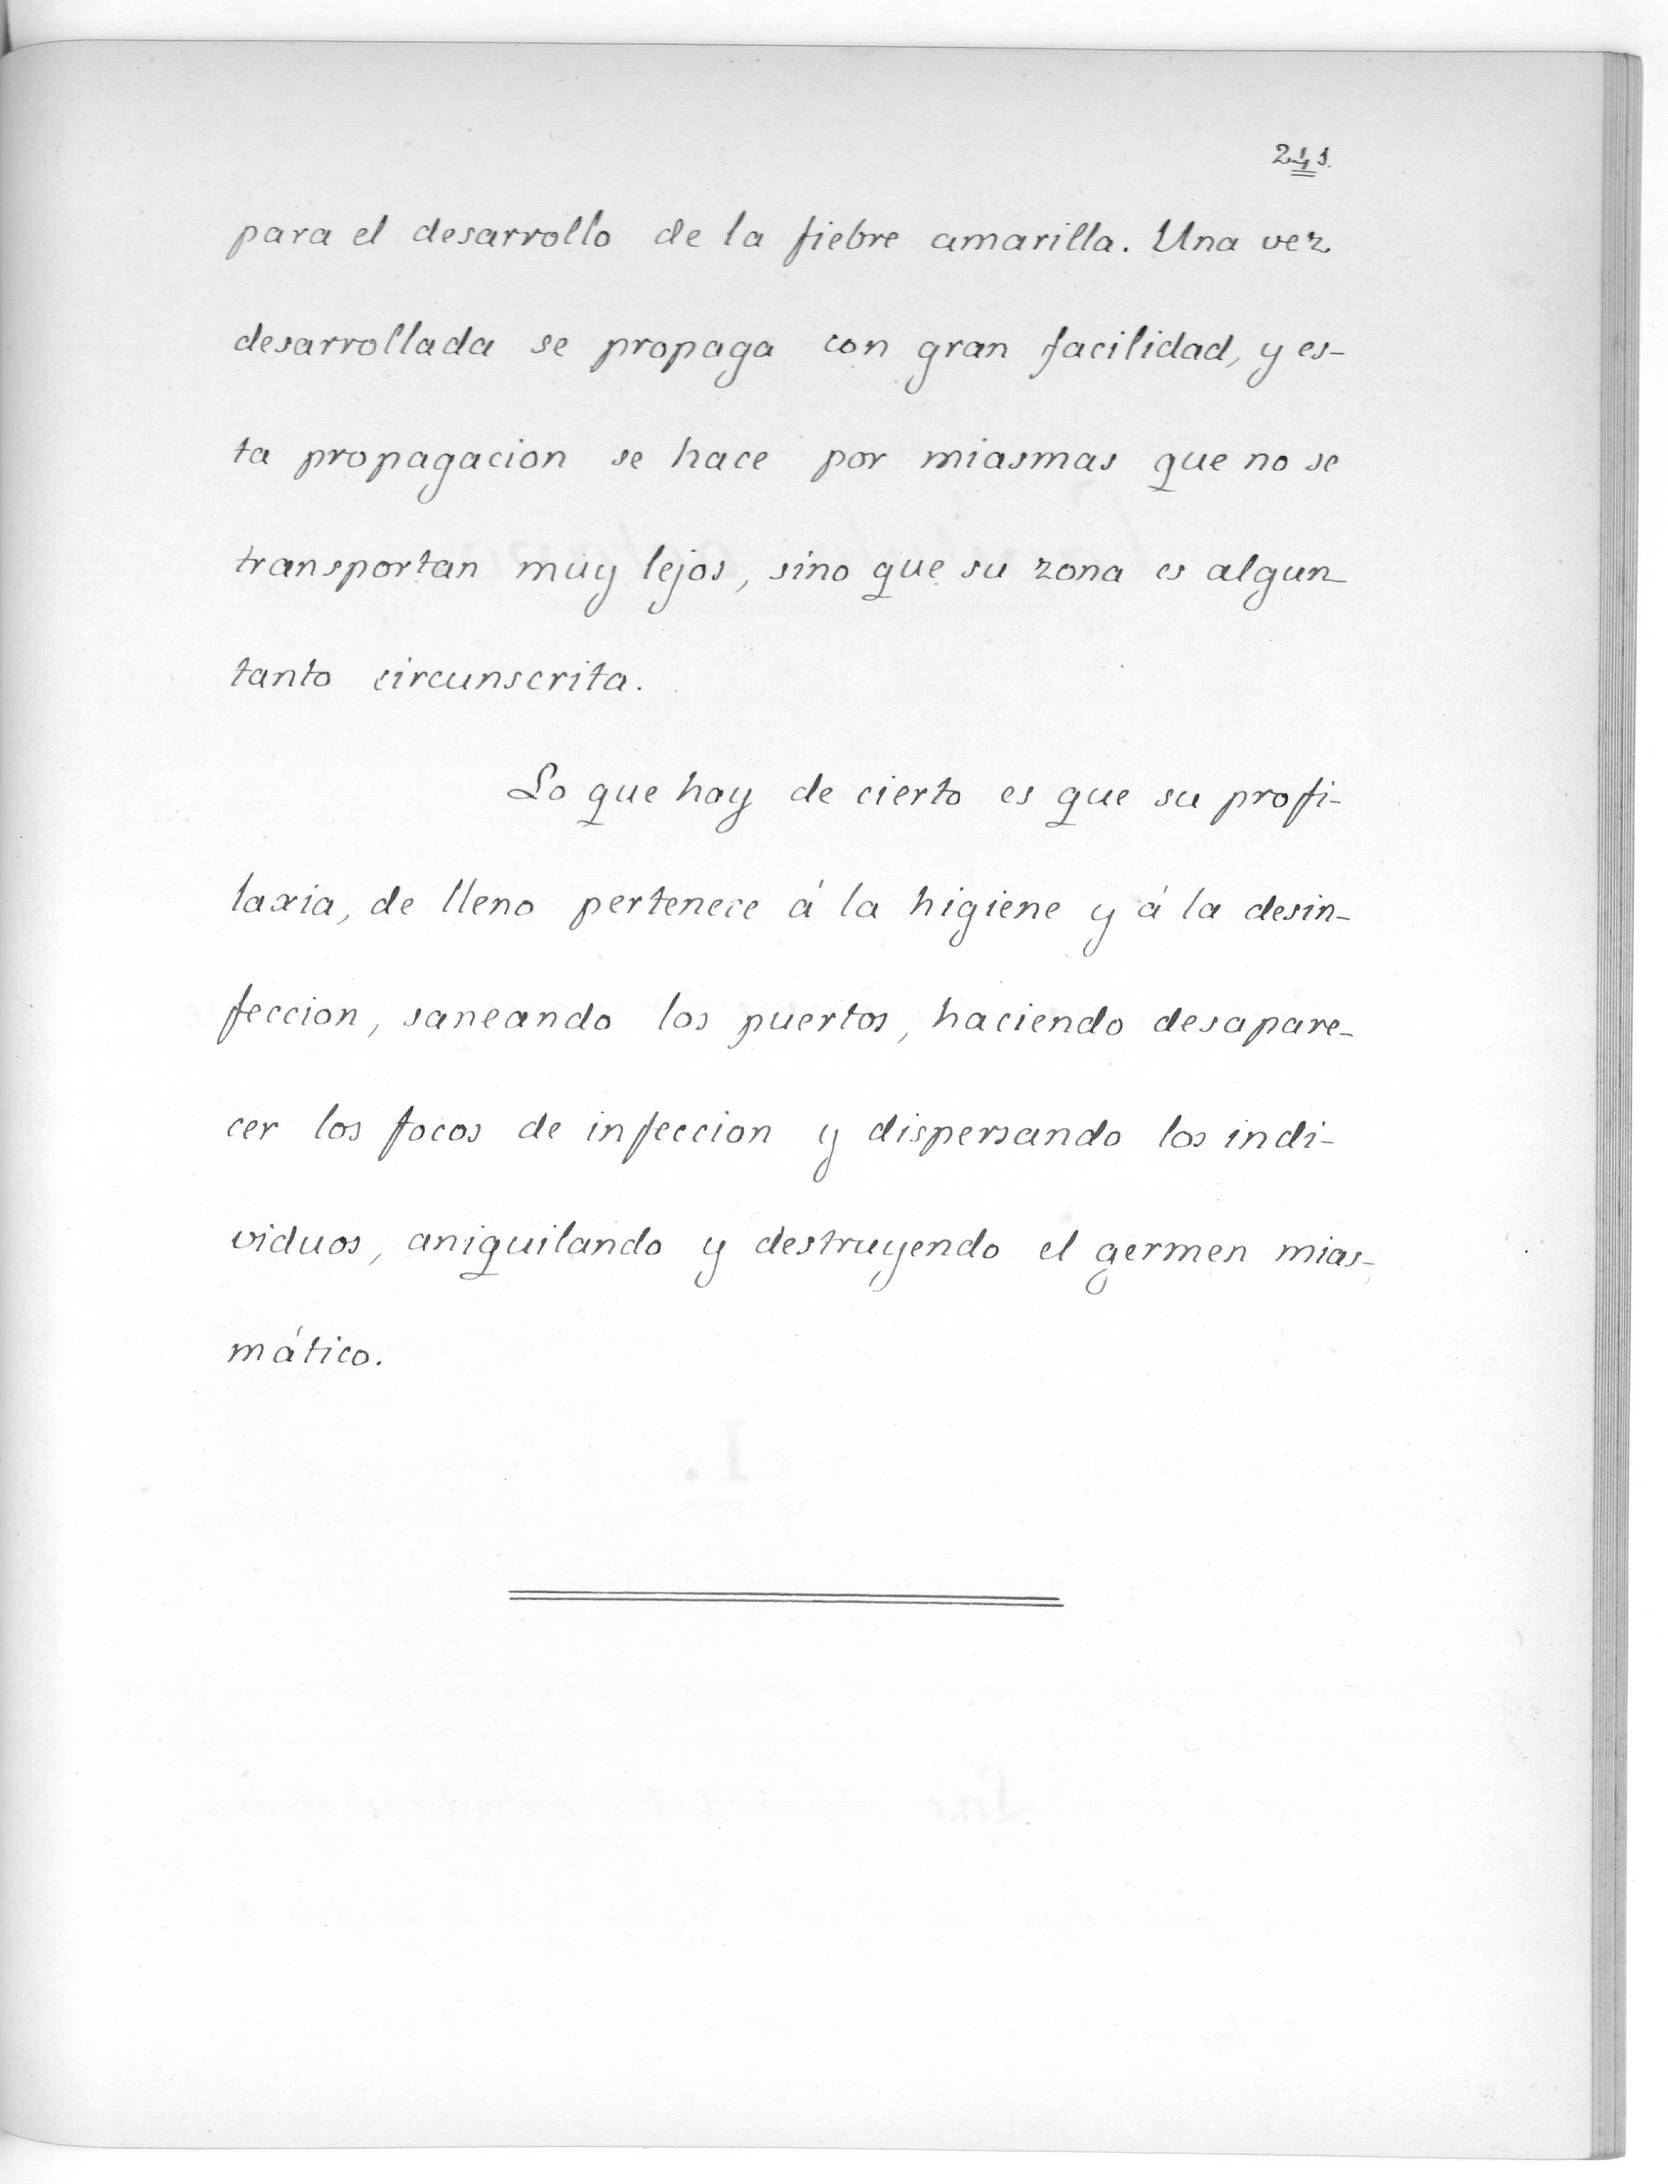 241.
para el desarrollo de la fiebre amarilla. Una vez
desarrollada se propaga con gran facilidad, y es-
ta propagacion se hace por miasmas que no se
transportan muy lejos, sino que su zona es algun-
tanto circunscrita.
Lo que hay de cierto es que su profi-
laxia, de lleno pertenece á la higiene y á la desin-
feccion, saneando los puertos, haciendo desapare-
cer los focos de infeccion y dispersando los indi-
viduos, aniquilando y destruyendo el germen mias-
mático.